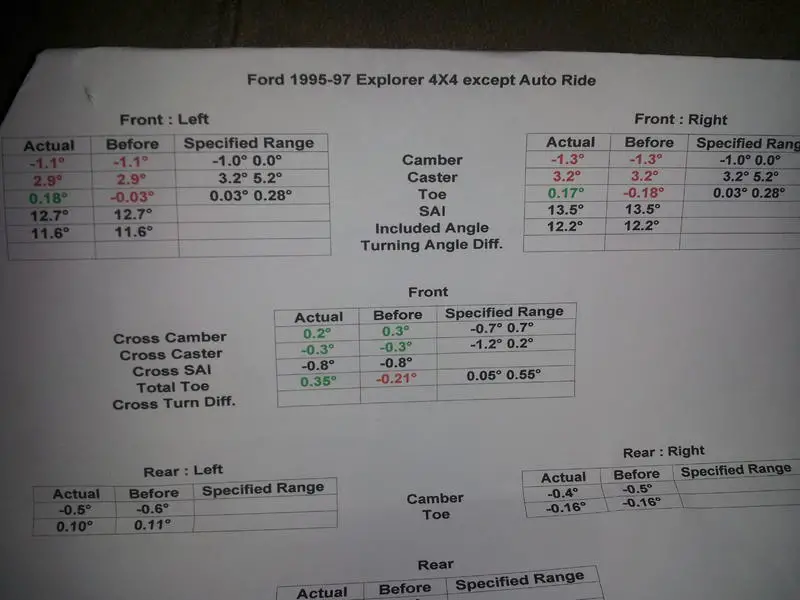 Ford 1995-97 Explorer 4X4 except Auto Ride
Front : Left
Actual Before Specified Range
-1.1° -1.1° -1.0° 0.0°
2.9° 2.9° 3.2° 5.2°
0.18° -0.03° 0.03° 0.28°
12.7° 12.7°
11.6° 11.6°
Camber
Caster
Toe
SAI
Included Angle
Turning Angle Diff.
Front : Right
Actual Before Specified Rang
-1.3° -1.3° -1.0° 0.0°
3.2° 3.2° 3.2° 5.2°
0.17° -0.18° 0.03° 0.28°
13.5° 13.5°
12.2° 12.2°
Front
Actual Before Specified Range
Cross Camber 0.2° 0.3° -0.7° 0.7°
Cross Caster -0.3° -0.3° -1.2° 0.2°
Cross SAI -0.8° -0.8°
Total Toe 0.35° -0.21° 0.05° 0.55°
Cross Turn Diff.
Rear : Left
Actual Before Specified Range
-0.5° -0.6°
0.10° 0.11°
Camber
Toe
Rear : Right
Actual Before Specified Range
-0.4° -0.5°
-0.16° -0.16°
Rear
Actual Before Specified Range